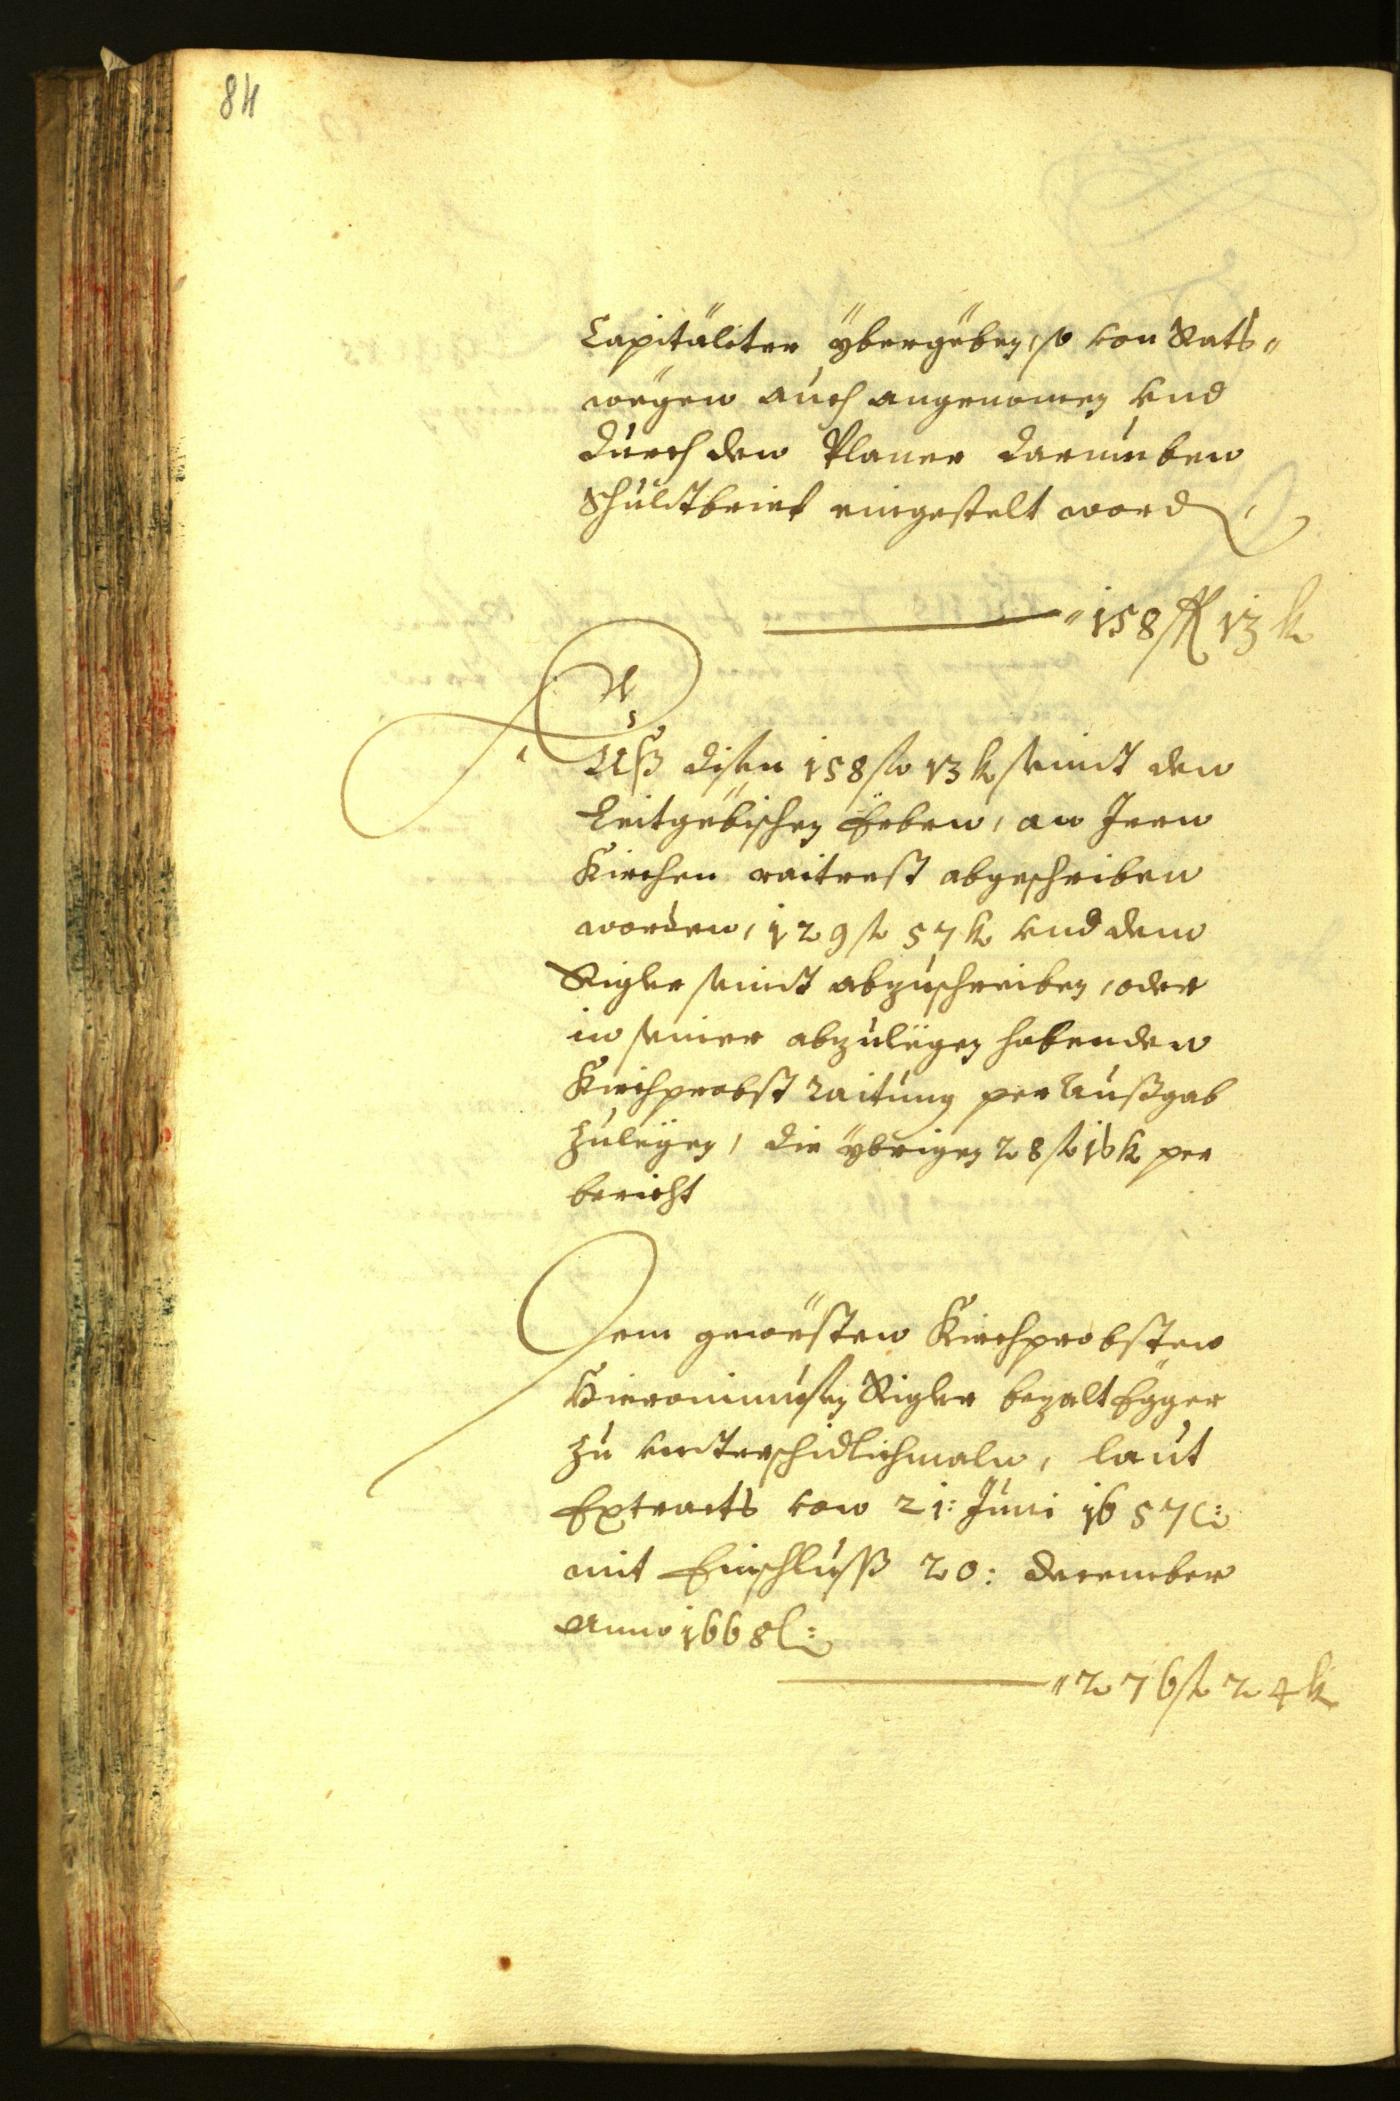 84
Capitäliter ÿbergëben, so von Rats„
wëgen auch angenomen vnd
durch den Planer darumben
Schuldtbrief eingestelt word
„158 fl 13 k
N
Auß disen 158 fl 13 k seindt den
Leitgëbischen Erben, an Iren
Kirchen raitrest abgeschriben
worden, 129 fl 57 k vnd dem
Rigler seindt abzuschreiben, oder
in seiner abzulegen habenden
Kirchprobst Raitung per Außgab
zulegen, die ÿbrigen 28 fl 16 k per
bericht
Dem gewësten Kirchprobsten
Hieronimußen Rigler bezalt Egger
zu vnterschidlichmaln, laut
Extracts von 21: Juni 1657 :
mit Einschluß 20: December
Anno 1668 :
„276 fl 24 k